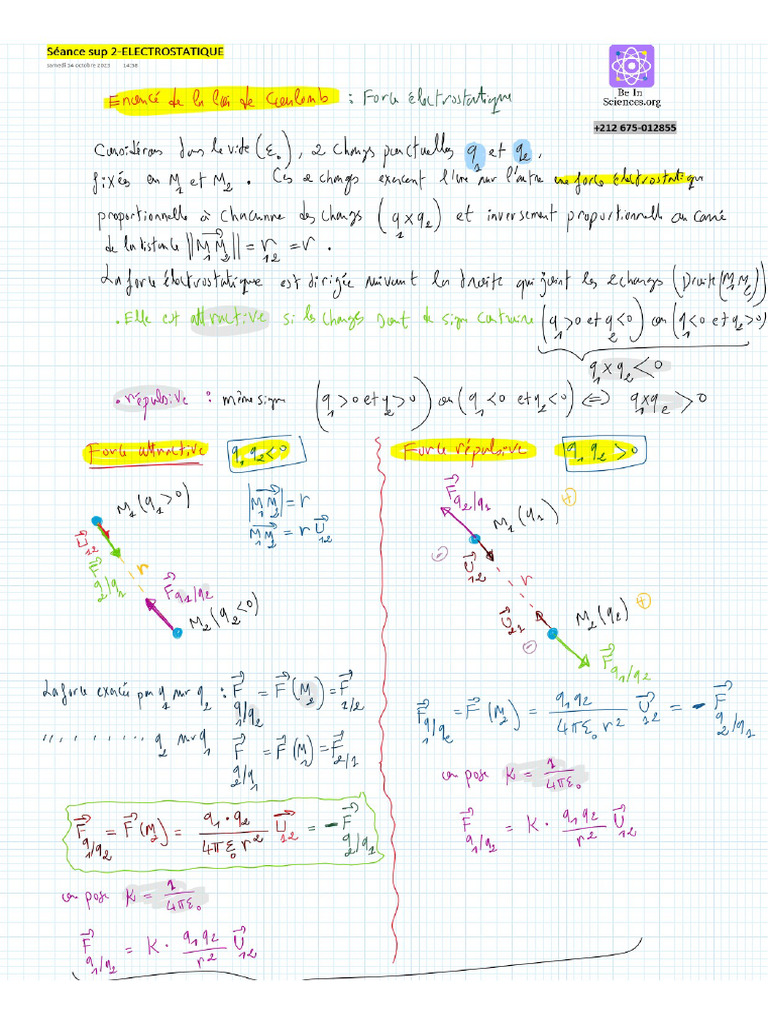 Séance sup 2-ELECTROSTATIQUE
samedi 14 octobre 2023 14:58
Be In
Sciences.org
+212 675-012855
Enoncé de la loi de Coulomb : Force électrostatique
Considérons dans le vide (ε₀), 2 charges ponctuelles q₁ et q₂,
fixés en M₁ et M₂. Ces 2 charges exercent l'une sur l'autre une force électrostatique
proportionnelle à chacunne des charges (q₁×q₂) et inversement proportionnelle au carré
de la distance ||M₁M₂|| = r₁₂ = r.
La force électrostatique est dirigée suivant la droite qui joint les 2 charges (Droite (M₁M₂))
• Elle est attractive si les charges sont de signe contraire (q₁>0 et q₂<0) ou (q₁<0 et q₂>0)
q₁×q₂<0
• répulsive : même signe (q₁>0 et q₂>0) ou (q₁<0 et q₂<0) ⇔ q₁×q₂>0
Force attractive q₁q₂<0
Force répulsive q₁q₂>0
M₁(q₁>0)
|M₁M₂| = r
M₁M₂ = r U₁₂
U₁₂
F q₂/q₁
r
F q₁/q₂
M₂(q₂<0)
F q₂/q₁
M₁(q₁) +
-
U₁₂
r
U₂₁
M₂(q₂) +
-
F q₁/q₂
La force exercée par q₁ sur q₂ : F q₁/q₂ = F(M₂) = F 1/2
,, ,, ,, ,, q₂ sur q₁ F q₂/q₁ = F(M₁) = F 2/1
F q₁/q₂ = F(M₂) = q₁·q₂ / 4πε₀r² U₁₂ = - F q₂/q₁
on pose K = 1/4πε₀
F q₁/q₂ = K · q₁q₂/r² U₁₂
F q₁/q₂ = F(M₂) = q₁q₂ / 4πε₀r² U₁₂ = - F q₂/q₁
on pose K = 1/4πε₀
F q₁/q₂ = K · q₁q₂/r² U₁₂